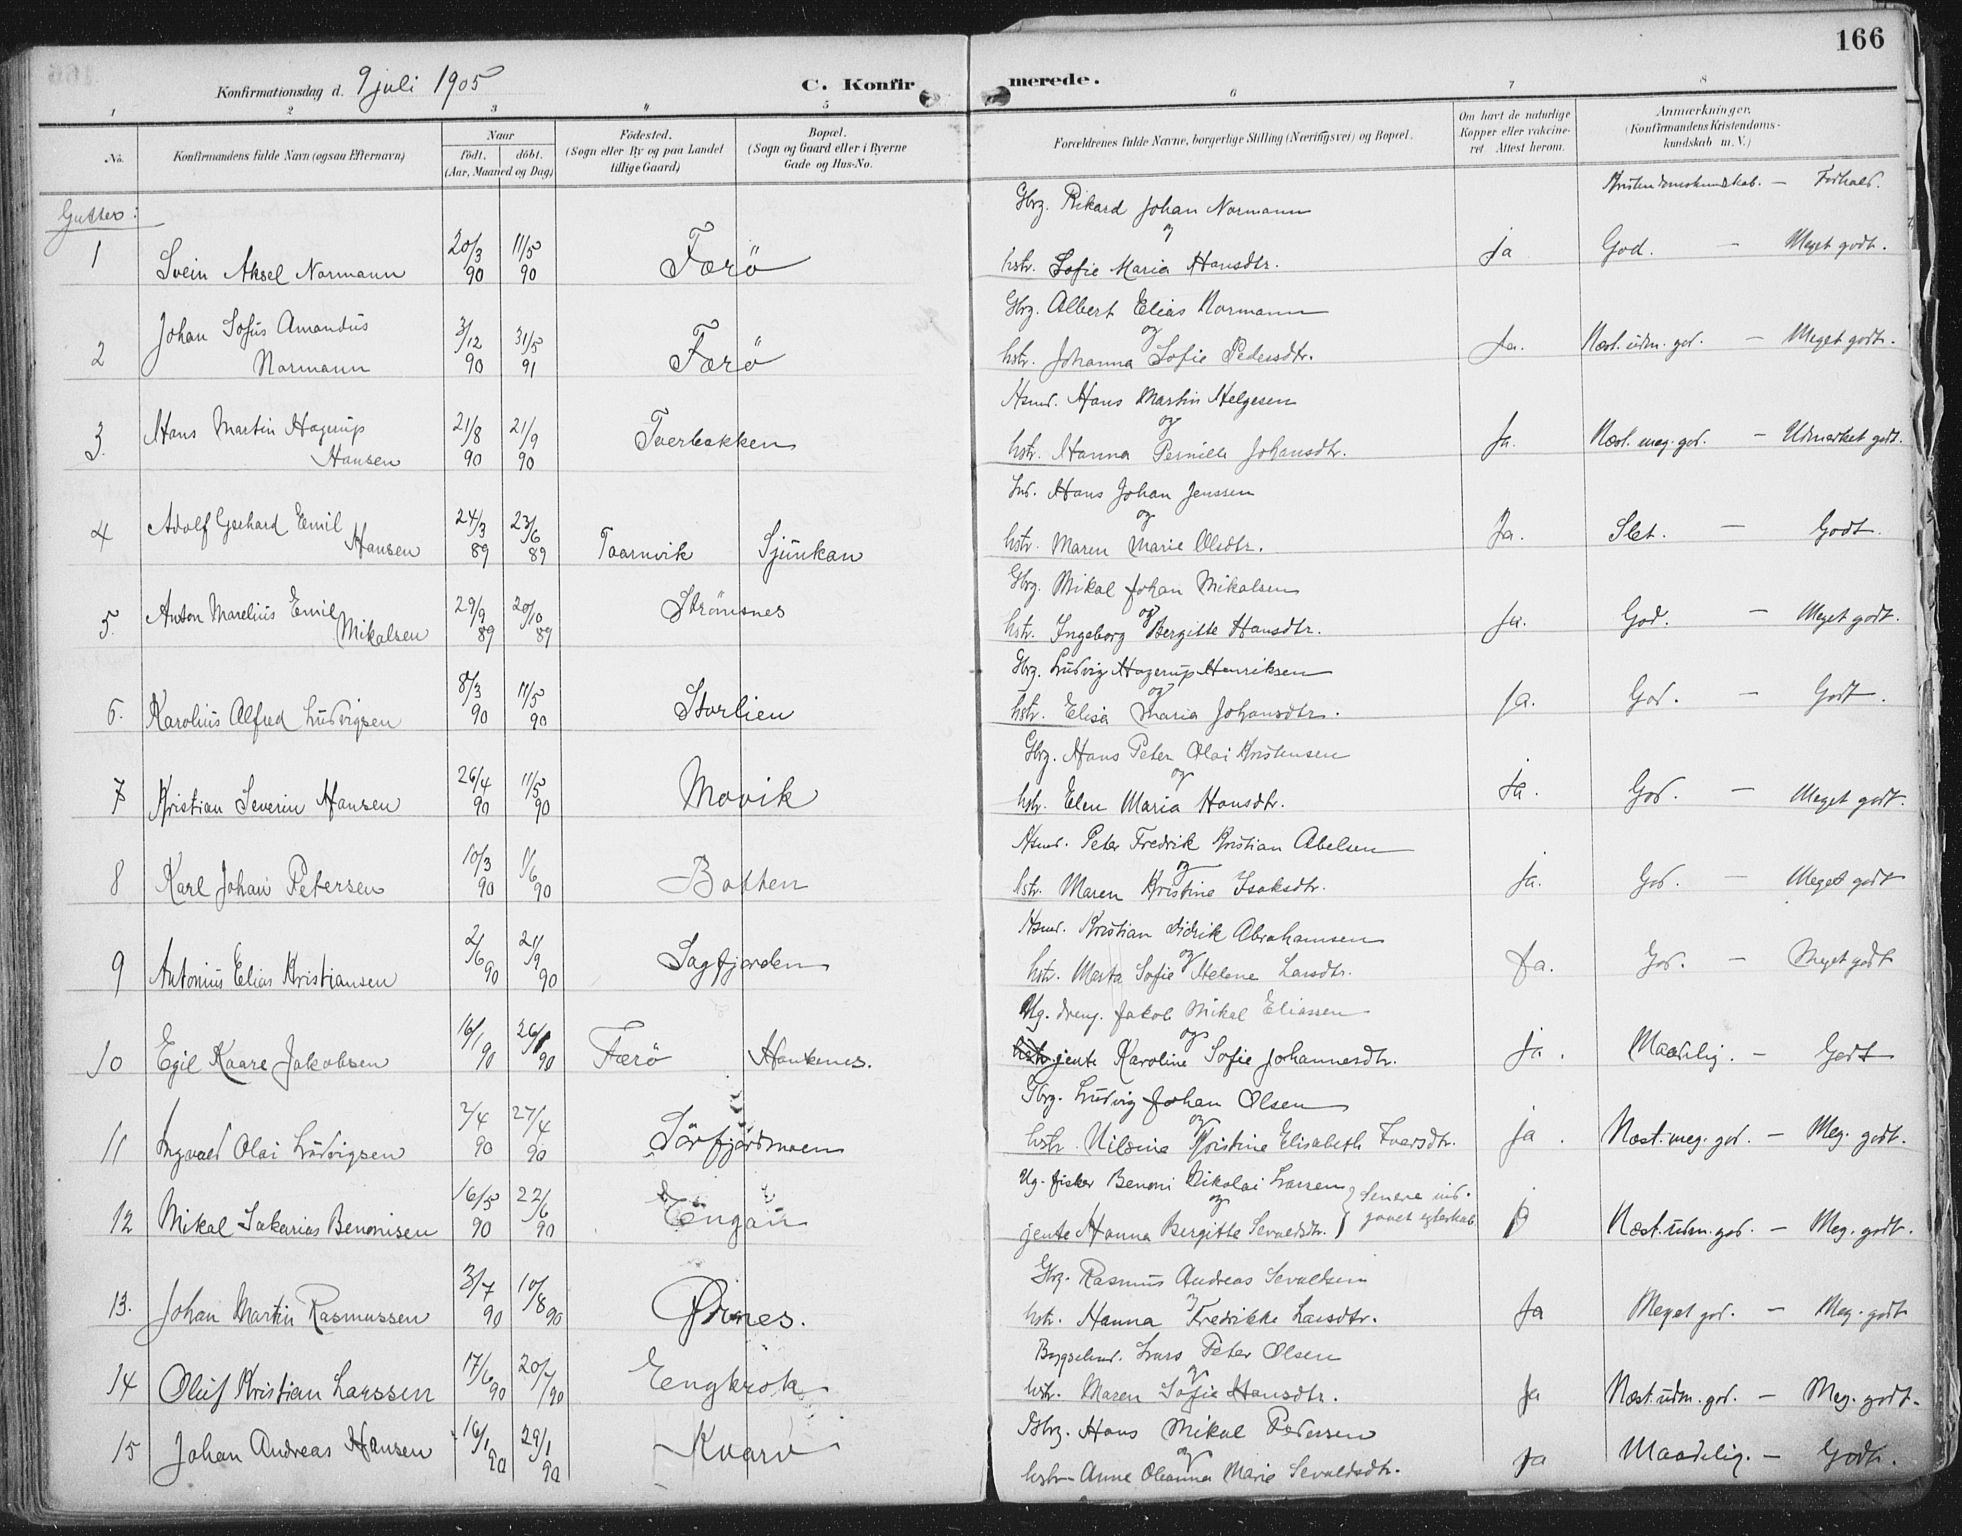 166
Konfirmationsdag d. 9 juli 1905
C. Konfirmerede.
1 2 3 " 5 6 7 8
No.
Konfirmandens fulde Navn (ogsaa Efternavn)
Naar
født. døbt.
(Aar, Maaned og Dag)
Fødested.
(Sogn eller By og paa Landet
tillige Gaard)
Bopæl.
(Sogn og Gaard eller i Byerne
Gade og Hus-No.
Forældrenes fulde Navne, borgerlige Stilling (Næringsvei) og Bopæl.
Om havt de naturlige
Kopper eller vakcine-
ret Attest herom.
Anmærkninger.
(Konfirmandens Kristendoms-
kundskab m. V.)
Kristendomskundskab. — Forhold.
Gutter:
Gbrg. Rikard Johan Normann
og
1 Svein Aksel Normann 20/3 90 11/5 90 Færö hstr. Sofie Maria Hansdtr. ja God. — Meget godt.
Johan Sofus Amandus
Gbrg. Albert Elias Normann
og
2 Normann 3/12 90 31/5 91 Færö hstr. Johanna Sofie Pedersdtr. Ja. Næst. udm. god. — Meget godt.
Hans Martin Hagerup
Hsmd. Hans Martin Helgesen
og
3. Hansen 21/8 90 21/9 90 Tverbakken hstr. Hanna Pernille Johansdtr. Ja. Næst. meg. god. — Udmærket godt.
Ind. Hans Johan Jenssen
og
4 Adolf Gerhard Emil Hansen 24/3 89 23/6 89 Taarnvik Sjunkan hstr. Maren Marie Olsdtr. Ja. Slet. — Godt.
Gbrg. Mikal Johan Mikalsen
og
5. Anton Marelius Emil Mikalsen 29/9 89 20/10 89 Strömsnes hstr. Ingeborg Bergitte Hansdtr. Ja. God. — Meget godt.
Gbrg. Ludvig Hagerup Henriksen
og
6. Karolius Alfred Ludvigsen 8/3 90 11/5 90 Storlien hstr. Elisa Maria Johansdtr. ja. God. — Godt.
Gbrg. Hans Peter Olai Kristensen
og
7 Kristian Severin Hansen 26/4 90 11/5 90 Movik hstr. Elen Maria Hansdtr. ja. God. — Meget godt.
Hsmd. Peter Fredrik Kristian Abelsen
og
8 Karl Johan Petersen 10/3 90 1/6 90 Botten hstr. Maren Kristine Isaksdtr. ja. God. — Meget godt
Hsmd. Kristian Didrik Abrahamsen
og
9 Antonius Elias Kristiansen 2/6 90 21/9 90 Sagfjorden hstr. Marta Sofie Helene Larsdtr. Ja. God. — Meget godt
Ug. dreng. Jakob Mikal Eliassen
og
10 Egil Kaare Jakobsen 16/1 90 26/ 90 Færö Haukenes. jente Karoline Sofie Johannesdtr. ja. Maadelig. — Godt
Gbrg. Ludvig Johan Olsen
og
11 Ingvald Olai Ludvigsen 3/4 90 27/4 90 Sörfjordmoen hstr. Nilsine Kristine Elisabeth Ivarsdtr. ja. Næst. meg. god. — Meg. godt.
Ug. fisker Benoni Nikolai Larsen } Senere ind-
og gaaet egteskab
12 Mikal Sakarias Benonisen 16/5 90 22/6 90 Engan jente Hanna Bergitte Sevaldsdtr. Næst. udm. god. — Meg. godt.
Gbrg. Rasmus Andreas Sevaldsen
og
13. Johan Martin Rasmussen 3/7 90 10/8 90 Örnes. hstr. Hanna Fredrikke Larsdtr. Ja Meget god. — Meg. godt
Bygselmd. Lars Peter Olsen
og
14 Oluf Kristian Larssen 17/6 90 20/7 90 Engkrok hstr. Maren Sofie Hansdtr. Ja Næst. udm. god. — Meg. godt.
Gbrg. Hans Mikal Pedersen
og
15 Johan Andreas Hansen 16/1 90 29/1 90 Kvarv hstr. Anne Oleanna Marie Sevaldsdtr. ja Maadelig. — Godt.